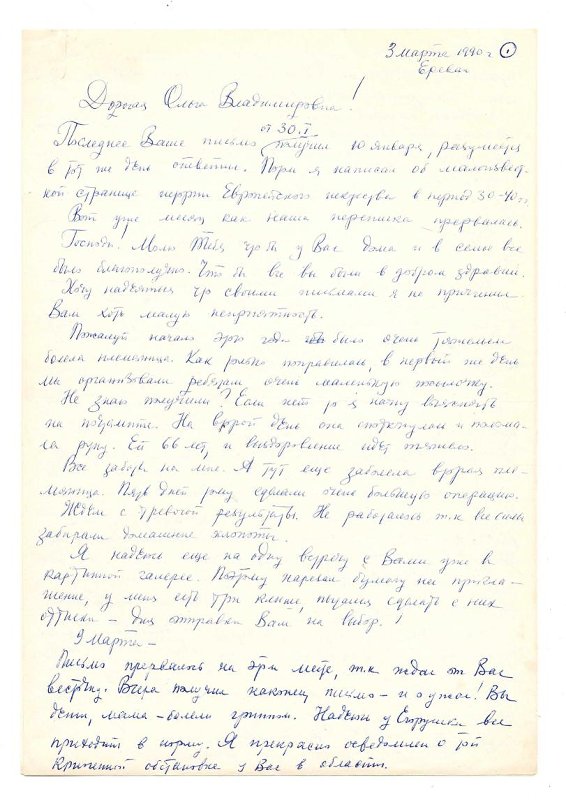 3 марта 1990 г ①
Ереван
Дорогая Ольга Владимировна!
от 30.I
Последнее Ваше письмо получил 10 января, разумеется
в тот же день ответил. Пори я написал об малоизвест-
ной странице Европейского искусства в период 30-40 гг.
Вот уже месяц как наша переписка прервалась.
Господь. Молю Тебя что бы у Вас дома и в семье все
было благополучно. Что бы все вы были в добром здравии.
Хочу надеятся что своими письмами я не причинил
Вам хоть малую неприятность.
Пожалуй начало этого года было очень тяжелым
болела племянница. Как только поправилась, в первый же день
мы организовали ребятам очень маленькую посылочку.
Не знаю получили? Если нет то я начну выяснять
на почтамте. На второй день она споткнулась и слома-
ла руку. Ей 66 лет, и выздоровление идет тяжело.
Все заботы на мне. А тут еще заболела вторая пле-
мянница. Пять дней тому сделали очень большую операцию.
Ждем с тревогой результаты. Не работалось т.к все силы
забирали домашние хлопоты.
Я надеюсь еще на одну встречу с Вами уже в
картинной галерее. Поэтому нарезал бумагу на пригла-
шение, у меня есть три клише, пытаюсь сделать с них
оттиски – для отправки Вам на выбор!
9 Марта –
Письмо прервалось на этом месте, т.к ждал от Вас
весточку. Вчера получил наконец письмо – и о ужас! Вы
дети, мама – болели гриппом. Надеюсь у Егорушки все
приходит в норму. Я прекрасно осведомлен о той
критичной обстановке у Вас в области.